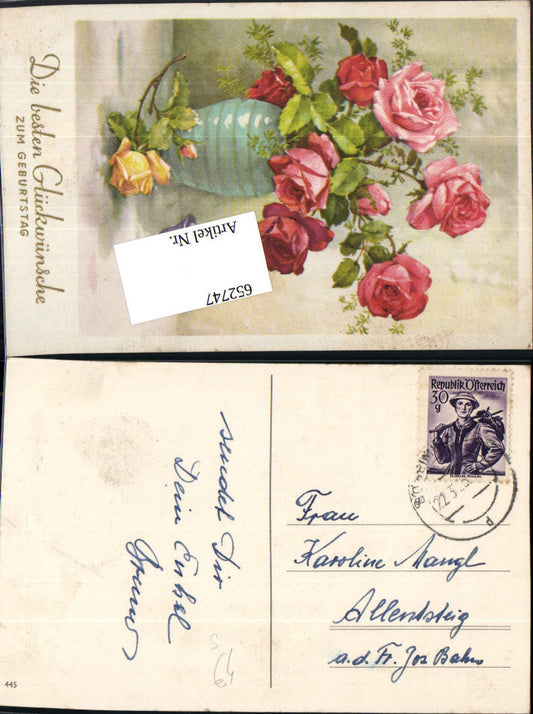 Die besten Glückwünsche
ZUM GEBURTSTAG
Artikel Nr.
652747
sendet Dir
Dein Enkel
Bruno
Republik Österreich
30
g
22.3.5
Frau
Karoline Mangl
Allentsteig
a.d. Fr. Jos Bahn
445